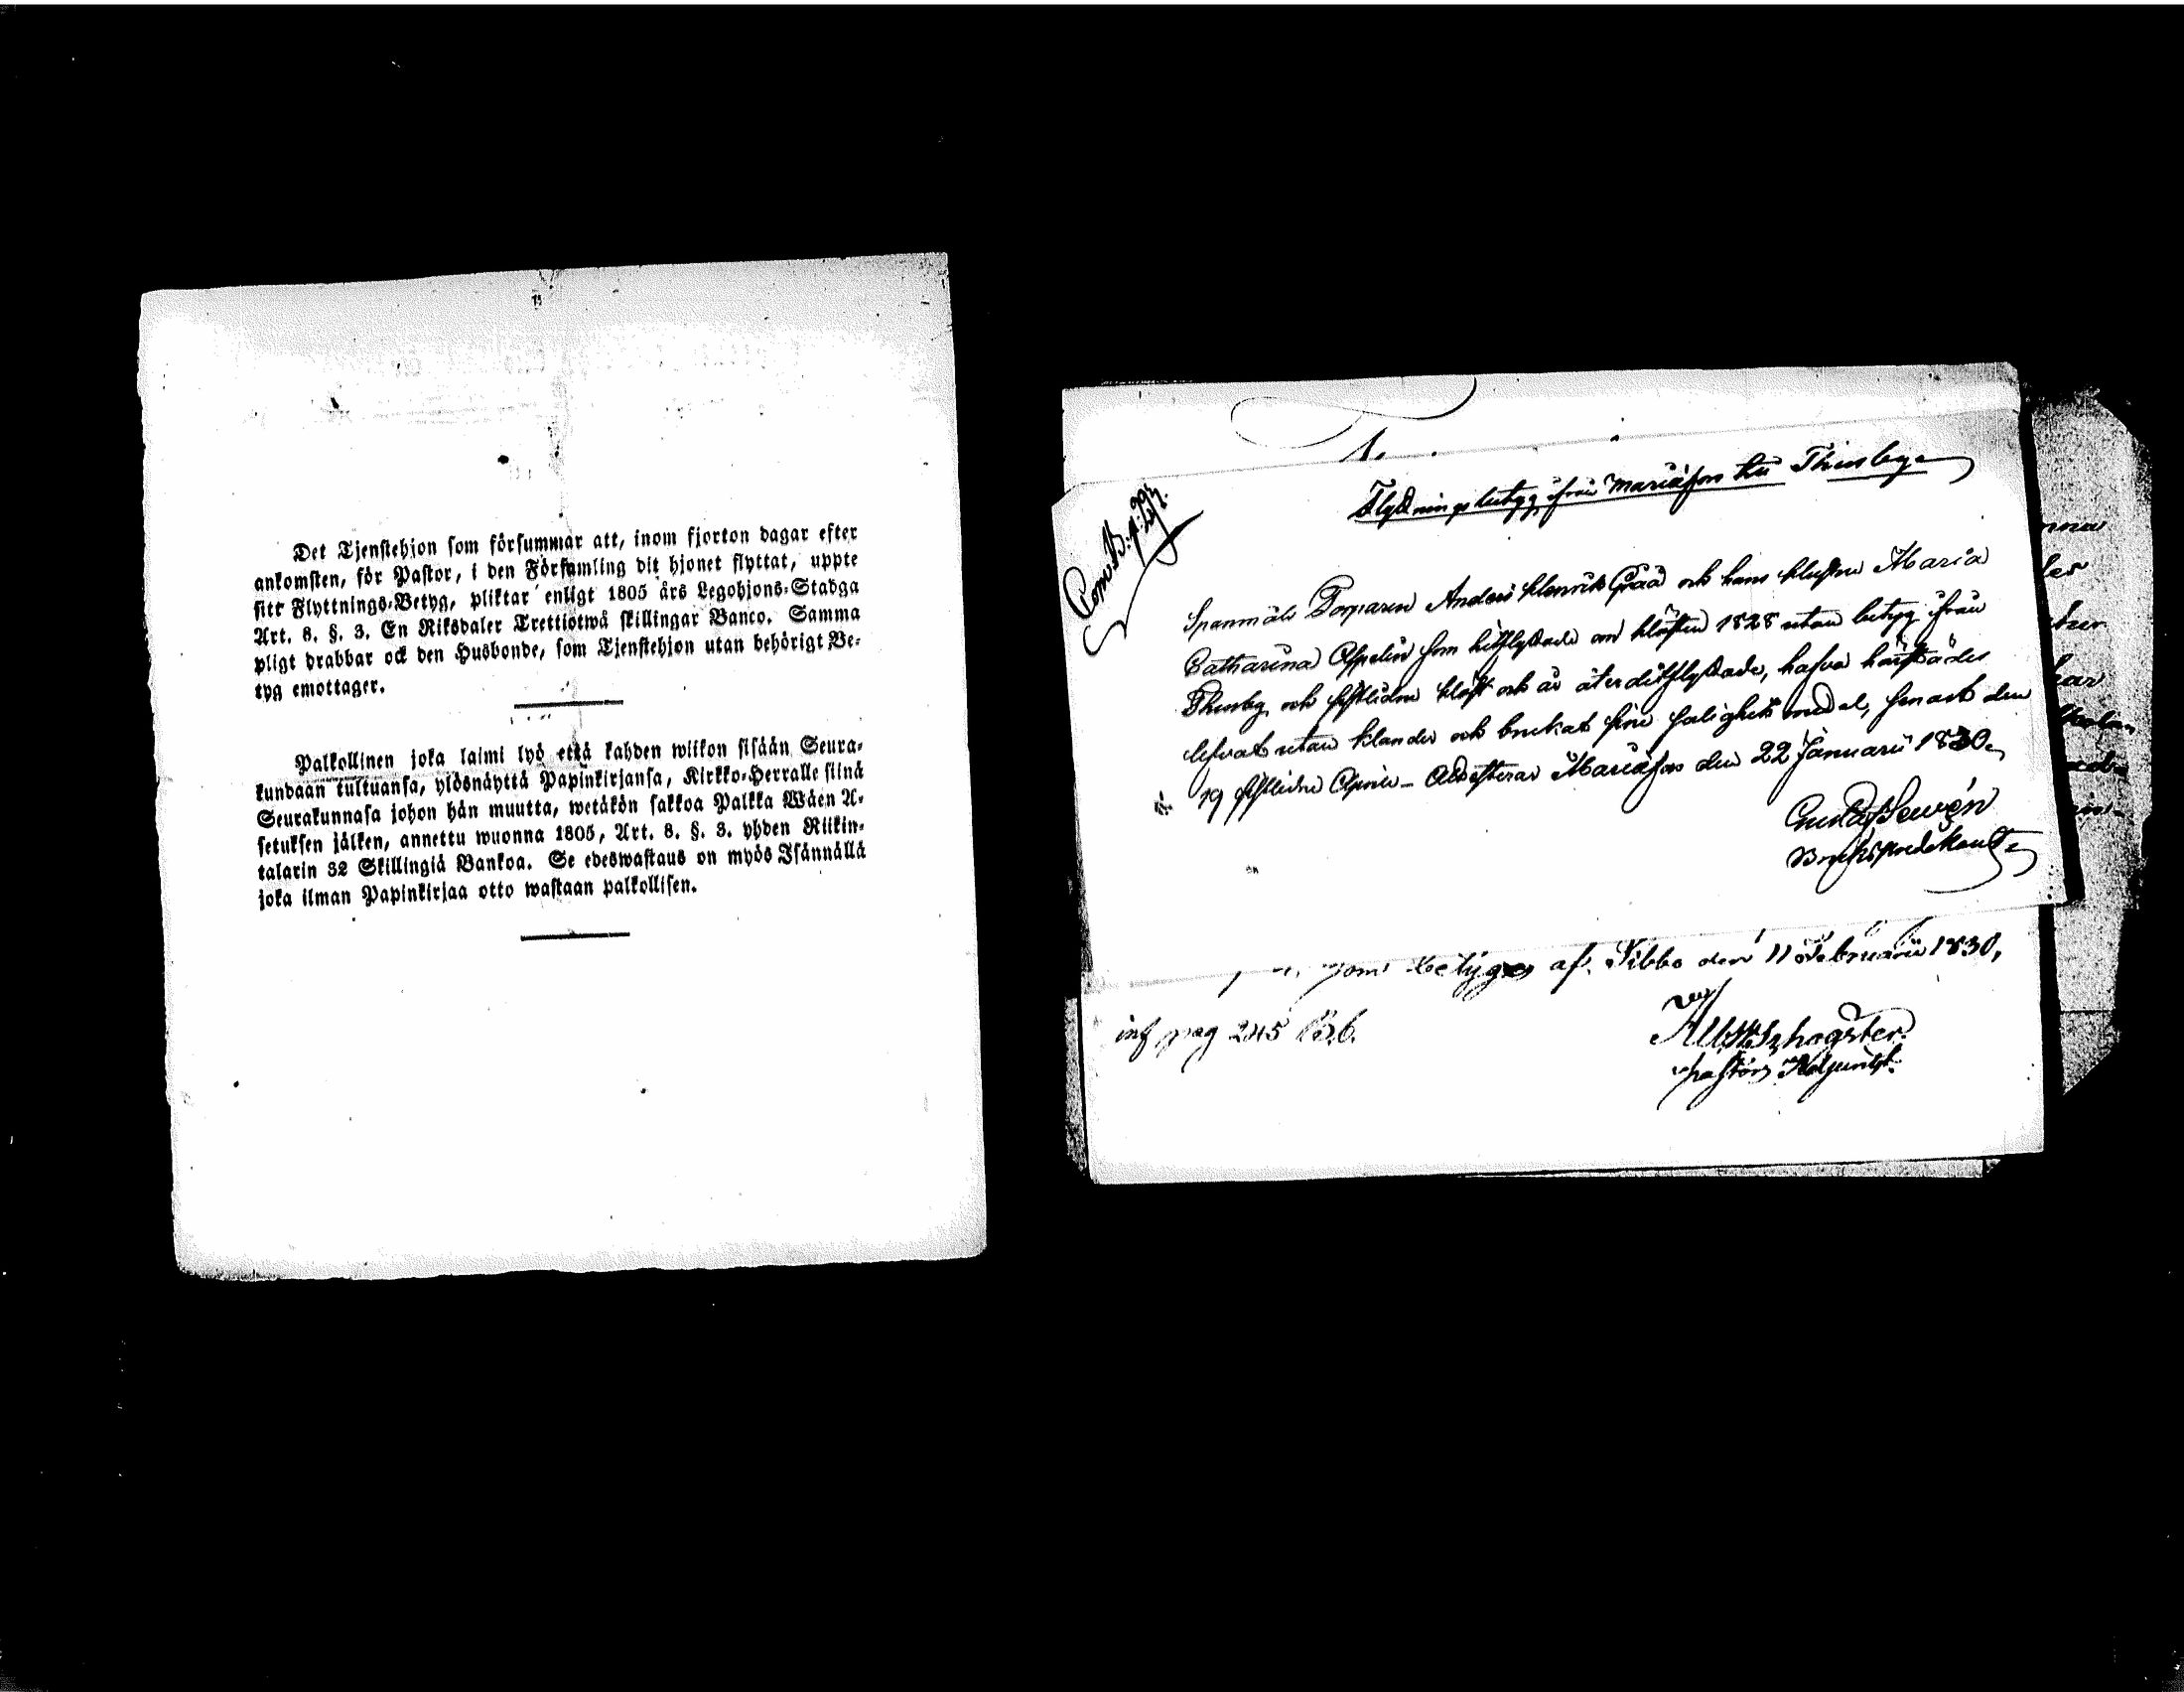 Det Tjenstehjon som försummar att, inom fjorton dagar efter
ankomsten, för Pastor, i den Församling dit hjonet flyttat, uppte
sitt Flyttnings-Betyg, pliktar enligt 1805 års Legohjons-Stadga
Art. 8. §. 3. En Riksdaler Trettiotwå skillingar Banco. Samma
pligt drabbar ock den Husbonde, som Tjenstehjon utan behörigt Be-
tyg emottager.
Palkollinen joka laimi lyö että kahden wiikon sisään Seura-
kundaan tultuansa, ylösnäyttä Papinkirjansa, Kirkko-Herralle siinä
Seurakunnasa johon hän muutta, wetäkön sakkoa Palkka Wäen A-
setuksen jälken, annettu wuonna 1805, Art. 8. §. 3. yhden Riikin-
talarin 32 Skillingiä Bankoa. Se edeswastaus on myös Isännällä
joka ilman Papinkirjaa otto wastaan palkollisen.
1.
Flyttningsbetyg ifrån Mariæfors till Thusby
Com.B. p.
Spanmåls Torparen Anders Henrik Grå och hans Hustru Maria
Catharina Appelin som hitflyttade om hösten 1828 utan betyg ifrån
Thusby och sistlidne höst och är åter ditflyttade, hafva härstädes
lefvat utan klander och brukat sine salighets medel, senast den
19 sistlidne Aprill - Attesterar Mariæfors den 22 Januarii 1830
Gustaf Levén
Brukspredikant
betyges af. Sibbo den 11 Februarii 1830,
inf pag 245
Pastors Adjunct.